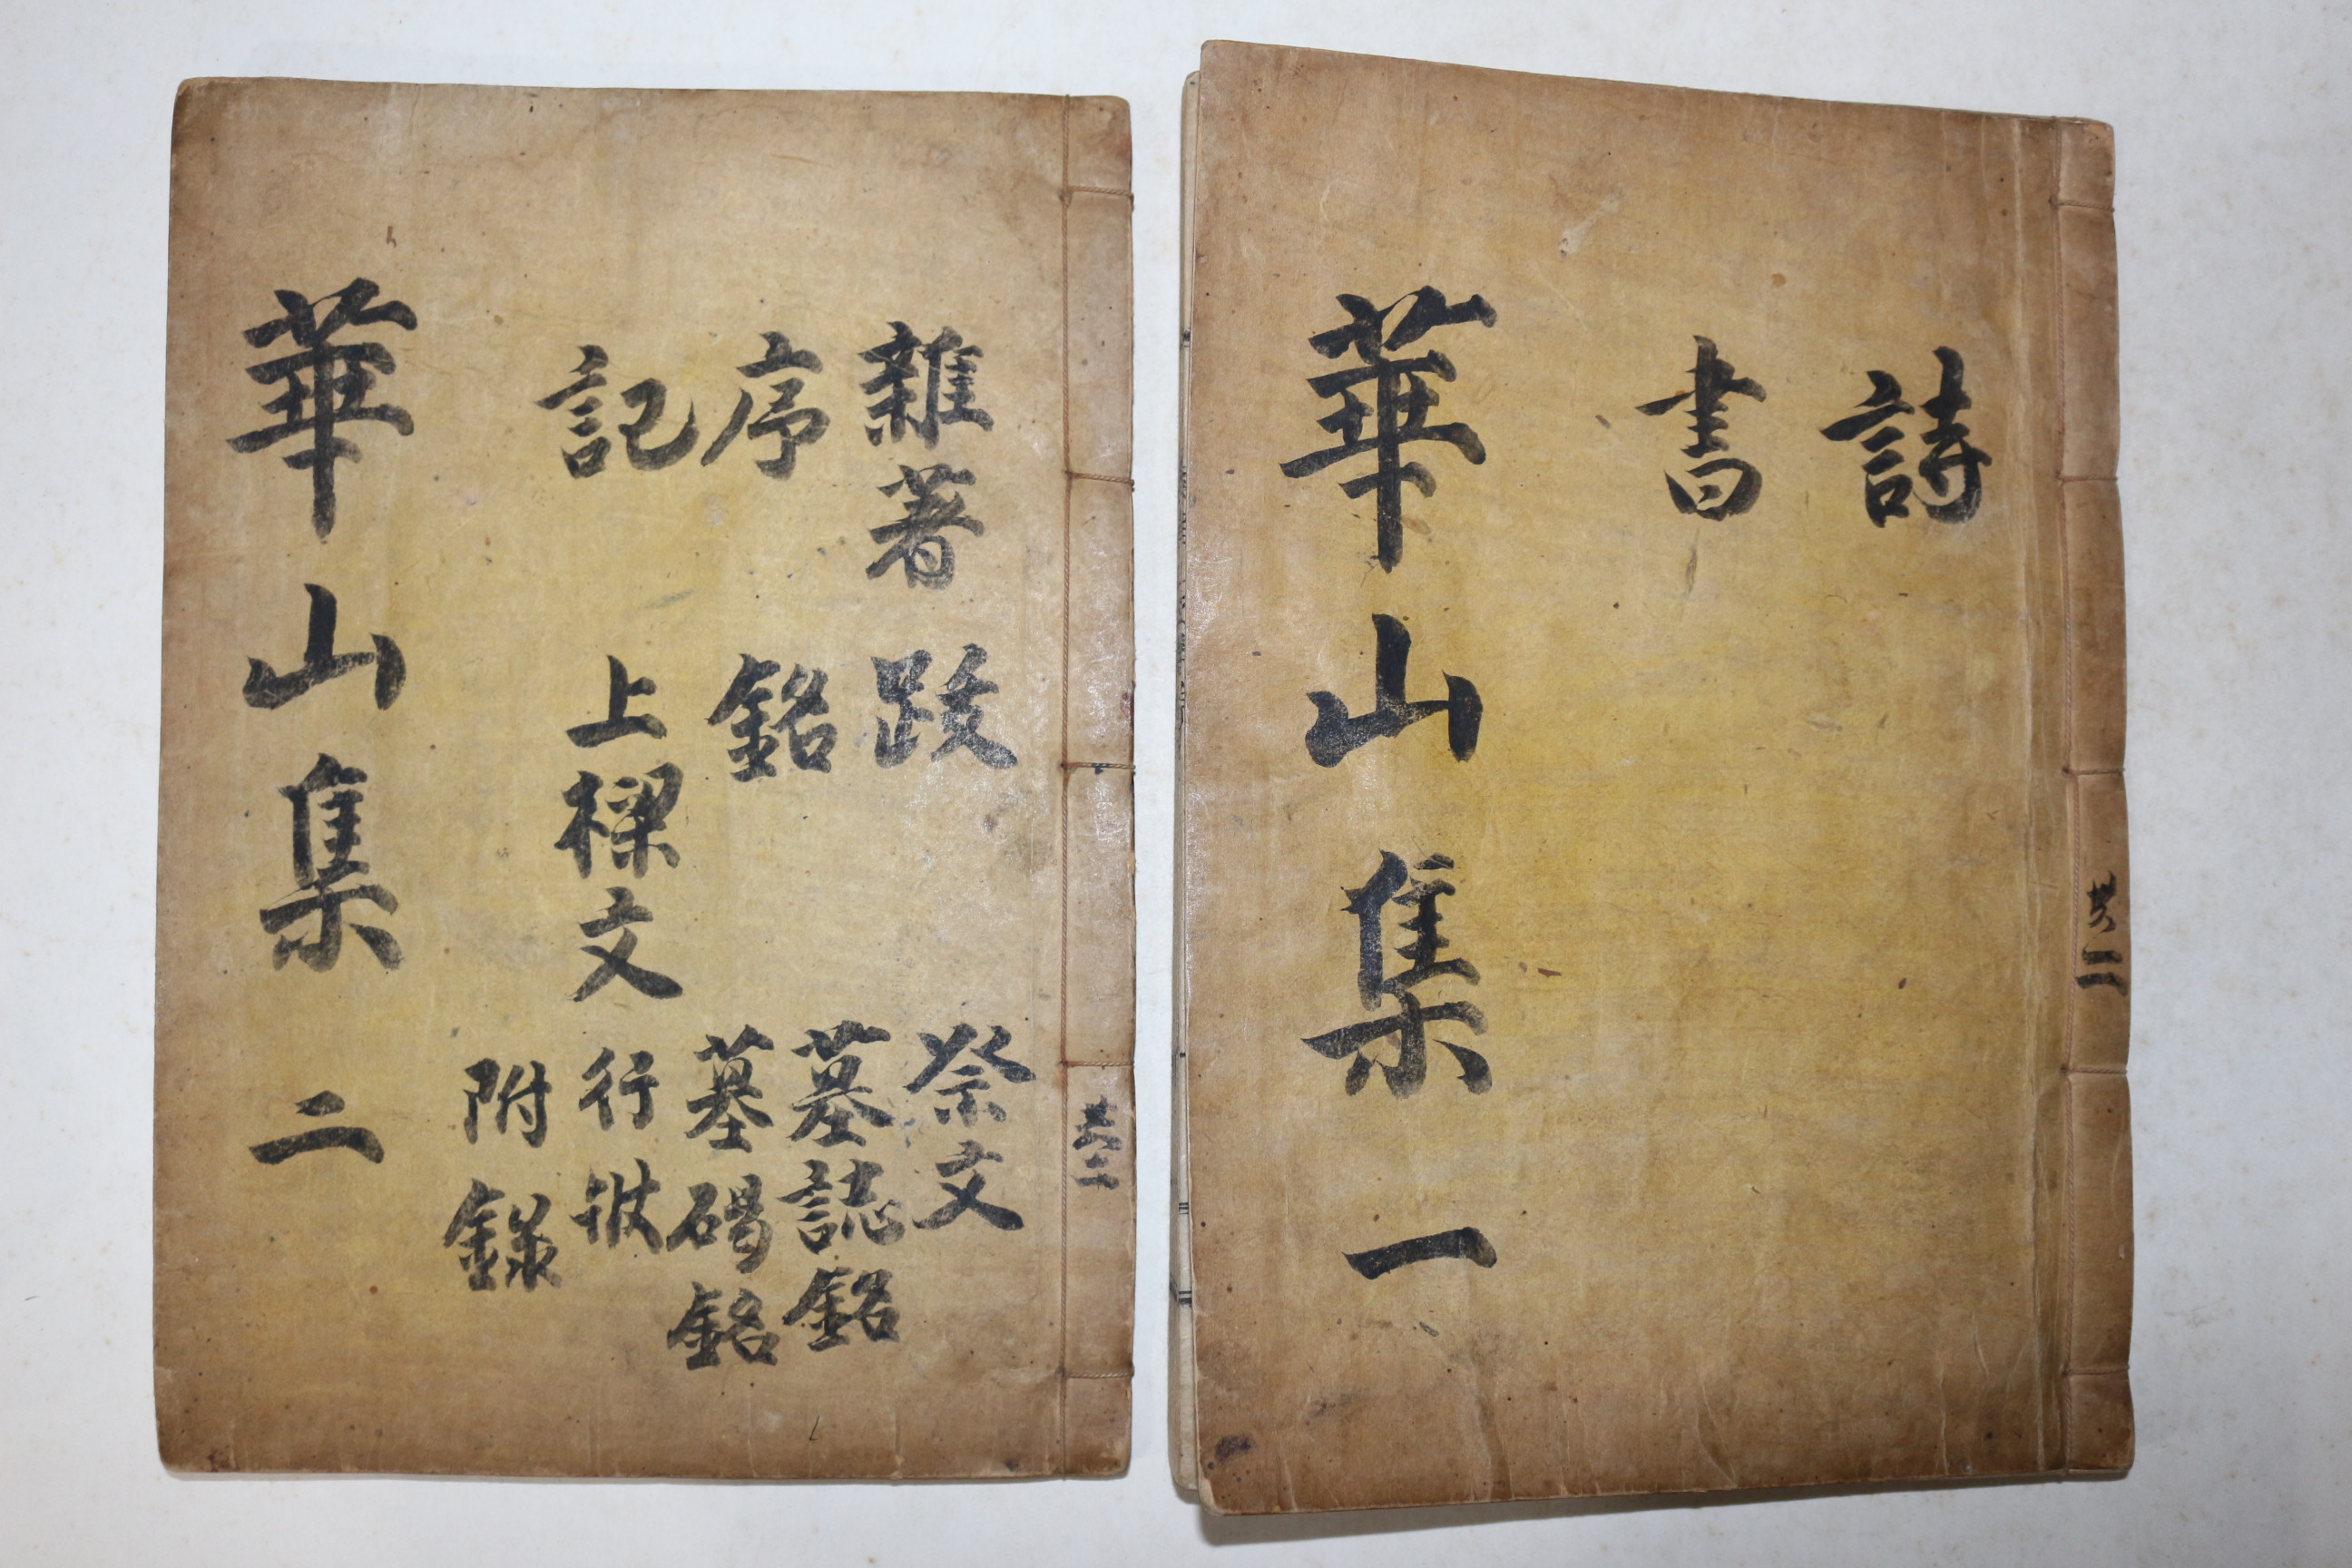 詩
書
華山集 一
共二
雜著 跋 祭文
序 銘 墓誌銘
墓碣銘
記 上樑文 行狀
附錄
華山集 二
共二